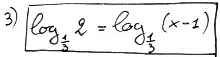 3) log_{1/3} 2 = log_{1/3} (x-1)